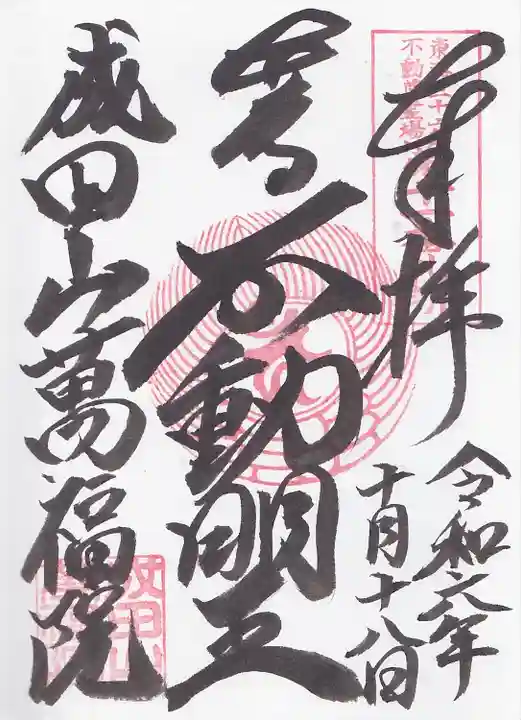 東海三十六
不動尊霊場
奉拝
令和六年
十月十八日
不動明王
成田山萬福院